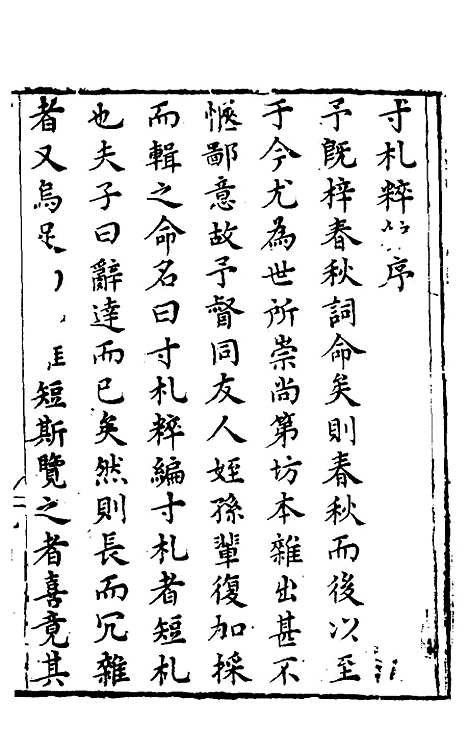 寸札粹序
予既梓春秋詞命矣則春秋而後以至
于今尤為世所崇尚第坊本雜出甚不
愜鄙意故予督同友人姪孫輩復加採
而輯之命名曰寸札粹編寸札者短札
也夫子曰辭達而已矣然則長而冗雜
者又烏足短斯覽之者喜竟其